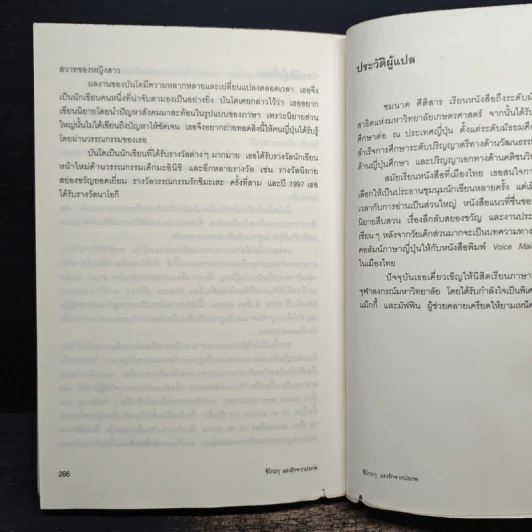 สวาทของหญิงสาว
ผลงานของบันโดมีความหลากหลายและเปลี่ยนแปลงตลอดเวลา เธอจึง
เป็นนักเขียนคนหนึ่งที่น่าจับตามองเป็นอย่างยิ่ง บันโดเคยกล่าวไว้ว่า เธออยาก
เขียนนิยายโดยนำปัญหาสังคมมาสะท้อนในรูปแบบของภาษา เพราะนิยายส่วน
ใหญ่นั้นไม่ได้เขียนถึงปัญหาให้ชัดเจน เธอจึงอยากถ่ายทอดสิ่งนี้ให้คนญี่ปุ่นได้รับรู้
โดยผ่านวรรณกรรมของเธอ
บันโดเป็นนักเขียนที่ได้รับรางวัลต่างๆ มากมาย เธอได้รับรางวัลนักเขียน
หน้าใหม่ด้านวรรณกรรมเด็กมะอินิชิ และอีกหลายรางวัล เช่น รางวัลนิยาย
สยองขวัญยอดเยี่ยม รางวัลวรรณกรรมรักชิมะเสะ ครั้งที่สาม และปี 1997 เธอ
ได้รับรางวัลนาโอกิ
266
ชิโกะกุ แดงรักจากปมภพ
ประวัติผู้แปล
ชมนาด ศีติสาร เรียนหนังสือถึงระดับมั
สาธิตแห่งมหาวิทยาลัยเกษตรศาสตร์ จากนั้นได้รั
ศึกษาต่อ ณ ประเทศญี่ปุ่น ตั้งแต่ระดับมัธยมศึ
สำเร็จการศึกษาระดับปริญญาตรีทางด้านวัฒนธรรม
ด้านญี่ปุ่นศึกษา และปริญญาเอกทางด้านคติชนวิท
สมัยเรียนหนังสือที่เมืองไทย เธอสนใจภา
เลือกให้เป็นประธานชุมนุมนักเขียนหลายครั้ง แต่เมื่
เวลากับการอ่านเป็นส่วนใหญ่ หนังสือแนวที่ชื่นชอบ
นิยายสืบสวน เรื่องลึกลับสยองขวัญ และงานประเ
เขียนๆ หลังจากวัยเด็กส่วนมากจะเป็นบทความทาง
คอลัมน์ภาษาญี่ปุ่นให้กับหนังสือพิมพ์ Voice Mai
ในเมืองไทย
ปัจจุบันเธอเคี่ยวเข็ญให้นิสิตเรียนภาษา
จุฬาลงกรณ์มหาวิทยาลัย โดยได้รับกำลังใจเป็นพิเศ
แม็กกี้ และมัฟฟิน ผู้ช่วยคลายเครียดให้ยามเหนื่อ
ชิโกะกุ แดงรักจากปมภพ